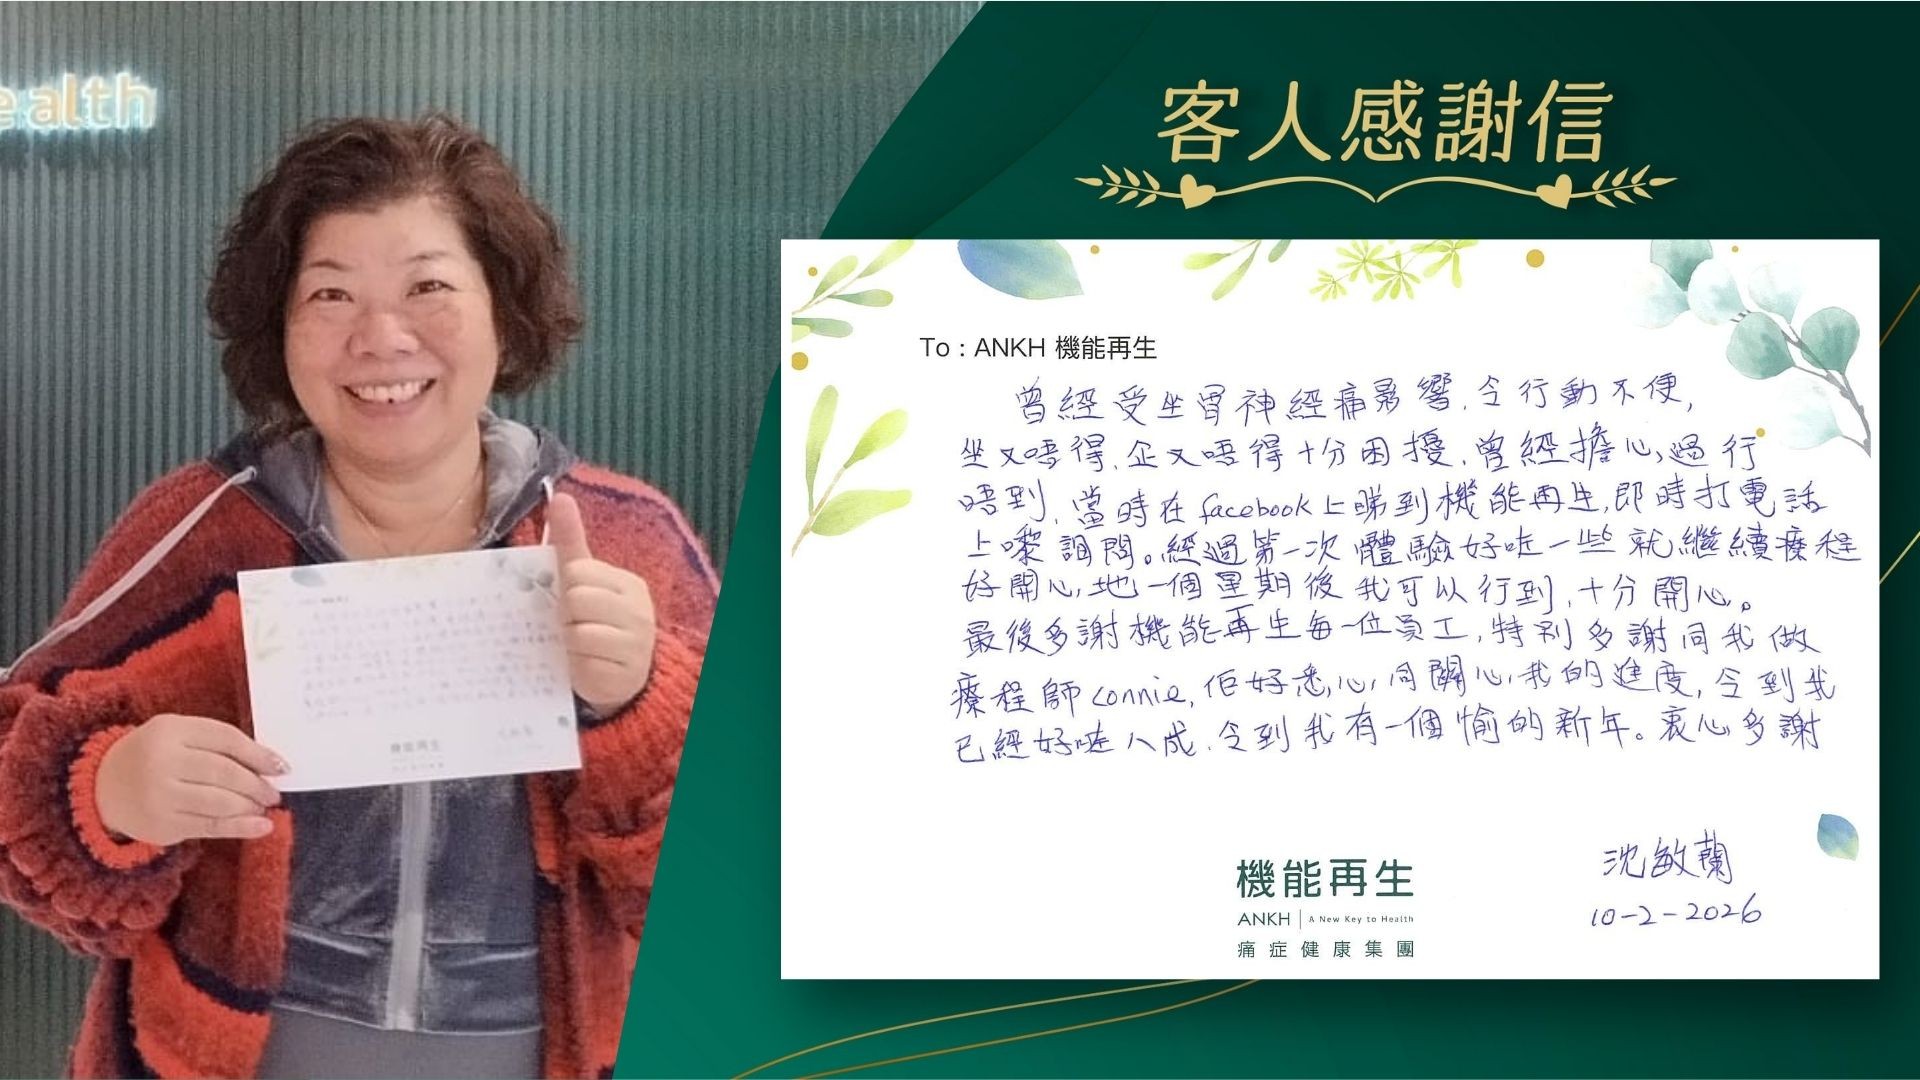 ealth
客人感謝信
To : ANKH 機能再生
曾經受坐骨神經痛影響,令行動不便,
坐又唔得,企又唔得十分困擾,曾經擔心,過行
唔到,當時在facebook上睇到機能再生,即時打電話
上嚟詢問。經過第一次體驗好咗一些就繼續療程
好開心,地一個星期後我可以行到,十分開心。
最後多謝機能再生每一位員工,特別多謝同我做
療程師Connie,佢好悉心,同關心我的進度,令到我
已經好咗八成,令到我有一個愉的新年。衷心多謝
沈敏蘭
10-2-2026
機能再生
ANKH | A New Key to Health
痛症健康集團
機能再生